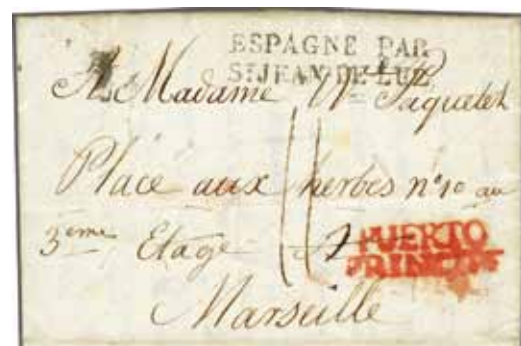 ESPAGNE PAR
ST JEAN-DE-LUZ
A Madame Paquetet
Place aux herbes n° 10 au
3eme Etage
PUERTO
PRINCIPE
11
Marseille